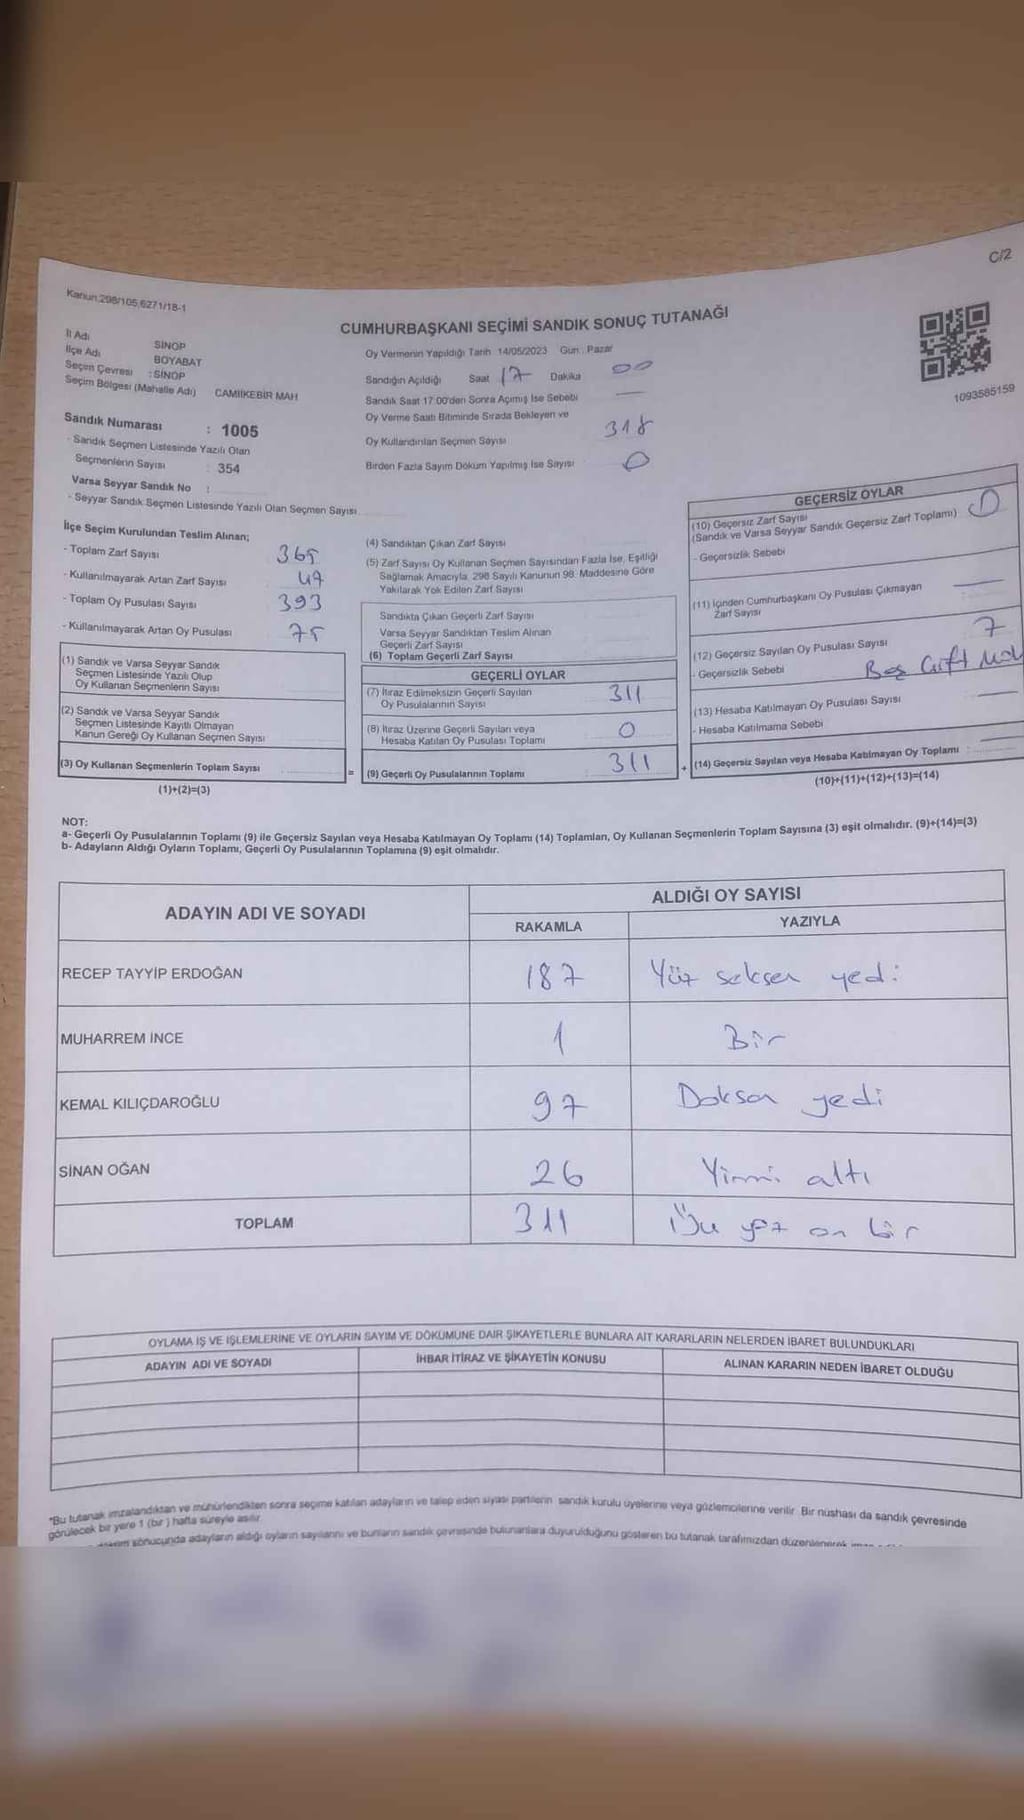 C/2
Kanun:298/105,6271/18-1
CUMHURBAŞKANI SEÇİMİ SANDIK SONUÇ TUTANAĞI
İl Adı SİNOP
İlçe Adı BOYABAT
Seçim Çevresi : SİNOP
Seçim Bölgesi (Mahalle Adı) CAMİİKEBİR MAH
Oy Vermenin Yapıldığı Tarih 14/05/2023 Gün : Pazar
Sandığın Açıldığı Saat 17 Dakika 00
Sandık Saat 17:00'den Sonra Açımış İse Sebebi —
Oy Verme Saati Bitiminde Sırada Bekleyen ve
Oy Kullandırılan Seçmen Sayısı 318
Birden Fazla Sayım Döküm Yapılmış İse Sayısı 0
1093585159
Sandık Numarası : 1005
- Sandık Seçmen Listesinde Yazılı Olan
Seçmenlerin Sayısı : 354
Varsa Seyyar Sandık No :
- Seyyar Sandık Seçmen Listesinde Yazılı Olan Seçmen Sayısı
İlçe Seçim Kurulundan Teslim Alınan;
- Toplam Zarf Sayısı 365
- Kullanılmayarak Artan Zarf Sayısı 47
- Toplam Oy Pusulası Sayısı 393
- Kullanılmayarak Artan Oy Pusulası 75
(1) Sandık ve Varsa Seyyar Sandık
Seçmen Listesinde Yazılı Olup
Oy Kullanan Seçmenlerin Sayısı
(2) Sandık ve Varsa Seyyar Sandık
Seçmen Listesinde Kayıtlı Olmayan
Kanun Gereği Oy Kullanan Seçmen Sayısı
(3) Oy Kullanan Seçmenlerin Toplam Sayısı
(1)+(2)=(3)
=
(4) Sandıktan Çıkan Zarf Sayısı
(5) Zarf Sayısı Oy Kullanan Seçmen Sayısından Fazla İse, Eşitliği
Sağlamak Amacıyla, 298 Sayılı Kanunun 98. Maddesine Göre
Yakılarak Yok Edilen Zarf Sayısı
Sandıkta Çıkan Geçerli Zarf Sayısı
Varsa Seyyar Sandıktan Teslim Alınan
Geçerli Zarf Sayısı
(6) Toplam Geçerli Zarf Sayısı
GEÇERLİ OYLAR
(7) İtiraz Edilmeksizin Geçerli Sayılan
Oy Pusulalarının Sayısı 311
(8) İtiraz Üzerine Geçerli Sayılan veya
Hesaba Katılan Oy Pusulası Toplamı 0
(9) Geçerli Oy Pusulalarının Toplamı 311
+
GEÇERSİZ OYLAR
(10) Geçersiz Zarf Sayısı
(Sandık ve Varsa Seyyar Sandık Geçersiz Zarf Toplamı) 0
- Geçersizlik Sebebi
(11) İçinden Cumhurbaşkanı Oy Pusulası Çıkmayan
Zarf Sayısı —
(12) Geçersiz Sayılan Oy Pusulası Sayısı 7
- Geçersizlik Sebebi Boş Çift
(13) Hesaba Katılmayan Oy Pusulası Sayısı —
- Hesaba Katılmama Sebebi
(14) Geçersiz Sayılan veya Hesaba Katılmayan Oy Toplamı : —
(10)+(11)+(12)+(13)=(14)
NOT:
a- Geçerli Oy Pusulalarının Toplamı (9) ile Geçersiz Sayılan veya Hesaba Katılmayan Oy Toplamı (14) Toplamları, Oy Kullanan Seçmenlerin Toplam Sayısına (3) eşit olmalıdır. (9)+(14)=(3)
b- Adayların Aldığı Oyların Toplamı, Geçerli Oy Pusulalarının Toplamına (9) eşit olmalıdır.
ADAYIN ADI VE SOYADI
ALDIĞI OY SAYISI
RAKAMLA YAZIYLA
RECEP TAYYİP ERDOĞAN 187 Yüz seksen yedi
MUHARREM İNCE 1 Bir
KEMAL KILIÇDAROĞLU 97 Doksan yedi
SİNAN OĞAN 26 Yirmi altı
TOPLAM 311 Üç yüz on bir
OYLAMA İŞ VE İŞLEMLERİNE VE OYLARIN SAYIM VE DÖKÜMÜNE DAİR ŞİKAYETLERLE BUNLARA AİT KARARLARIN NELERDEN İBARET BULUNDUKLARI
ADAYIN ADI VE SOYADI İHBAR İTİRAZ VE ŞİKAYETİN KONUSU ALINAN KARARIN NEDEN İBARET OLDUĞU
*Bu tutanak imzalandıktan ve mühürlendikten sonra seçime katılan adayların ve talep eden siyasi partilerin sandık kurulu üyelerine veya gözlemcilerine verilir. Bir nüshası da sandık çevresinde
görülecek bir yere 1 (bir) hafta süreyle asılır.
sonucunda adayların aldığı oyların sayılarını ve bunların sandık çevresinde bulunanlara duyurulduğunu gösteren bu tutanak tarafımızdan düzenlenerek